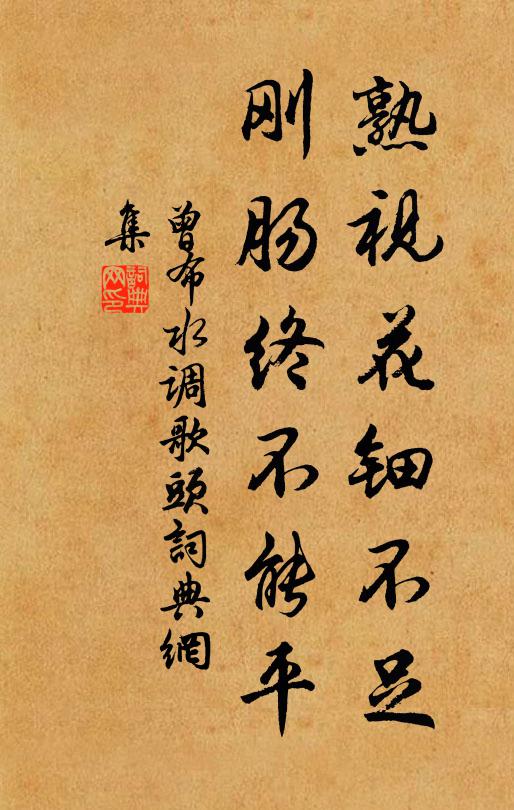 熟视花钿不足
刚肠终不能平
曾布水调歌頭詞典網
集
詞典網印